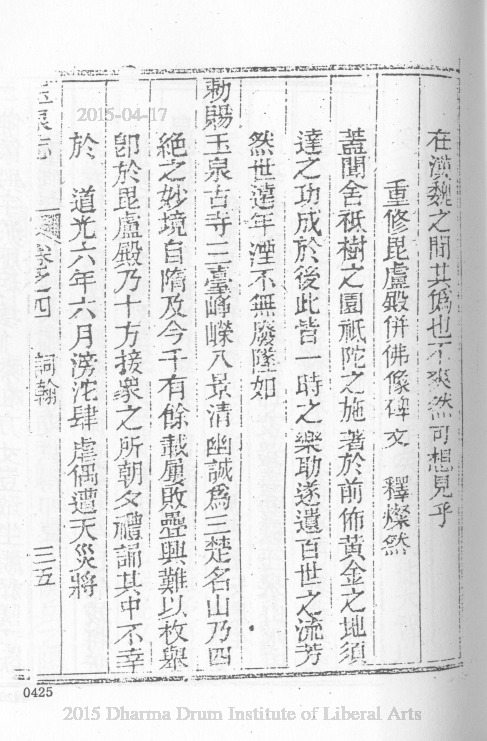 在漢魏之間其僞也不爽然可想見乎
重修毘盧殿併佛像碑文 釋燦然
蓋聞舍祇樹之園祇陀之施著於前佈黃金之地須
達之功成於後此皆一時之樂助遂遺百世之流芳
然世遠年湮不無廢墜如
勅賜玉泉古寺三臺崢嶸八景清幽誠為三楚名山乃四
絶之妙境自隋及今千有餘載屢敗疊興難以枚舉
卽於毘盧殿乃十方接衆之所朝夕禮誦其中不幸
於 道光六年六月滂沱肆虐偶遭天災將
玉泉志 卷之四 詞翰 三五
2015-04-17
0425
2015 Dharma Drum Institute of Liberal Arts